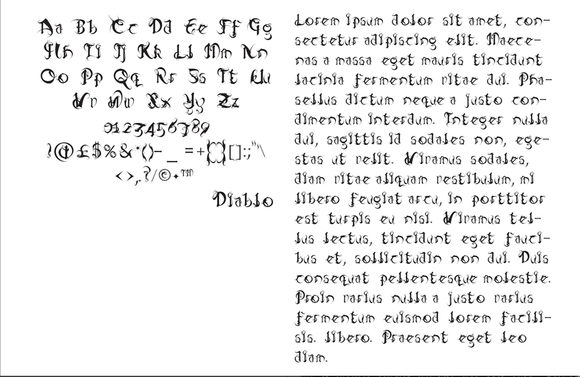 Aa Bb Cc Dd Ee Ff Gg
Hh Ii Jj Kk Ll Mm Nn
Oo Pp Qq Rr Ss Tt Uu
Vv Ww Xx Yy Zz
0123456789
!@£$%&*()-_=+{}[]:;"\
<>,.?/©•™
Diablo
Lorem ipsum dolor sit amet, con-
sectetur adipiscing elit. Maece-
nas a massa eget mauris tincidunt
lacinia fermentum vitae dui. Pha-
sellus dictum neque a justo con-
dimentum interdum. Integer nulla
dui, sagittis id sodales non, ege-
stas ut velit. Vivamus sodales,
diam vitae aliquam vestibulum, mi
libero feugiat arcu, in porttitor
est turpis eu nisi. Vivamus tel-
lus lectus, tincidunt eget fauci-
bus et, sollicitudin non dui. Duis
consequat pellentesque molestie.
Proin varius nulla a justo varius
fermentum euismod lorem facili-
sis. libero. Praesent eget leo
diam.